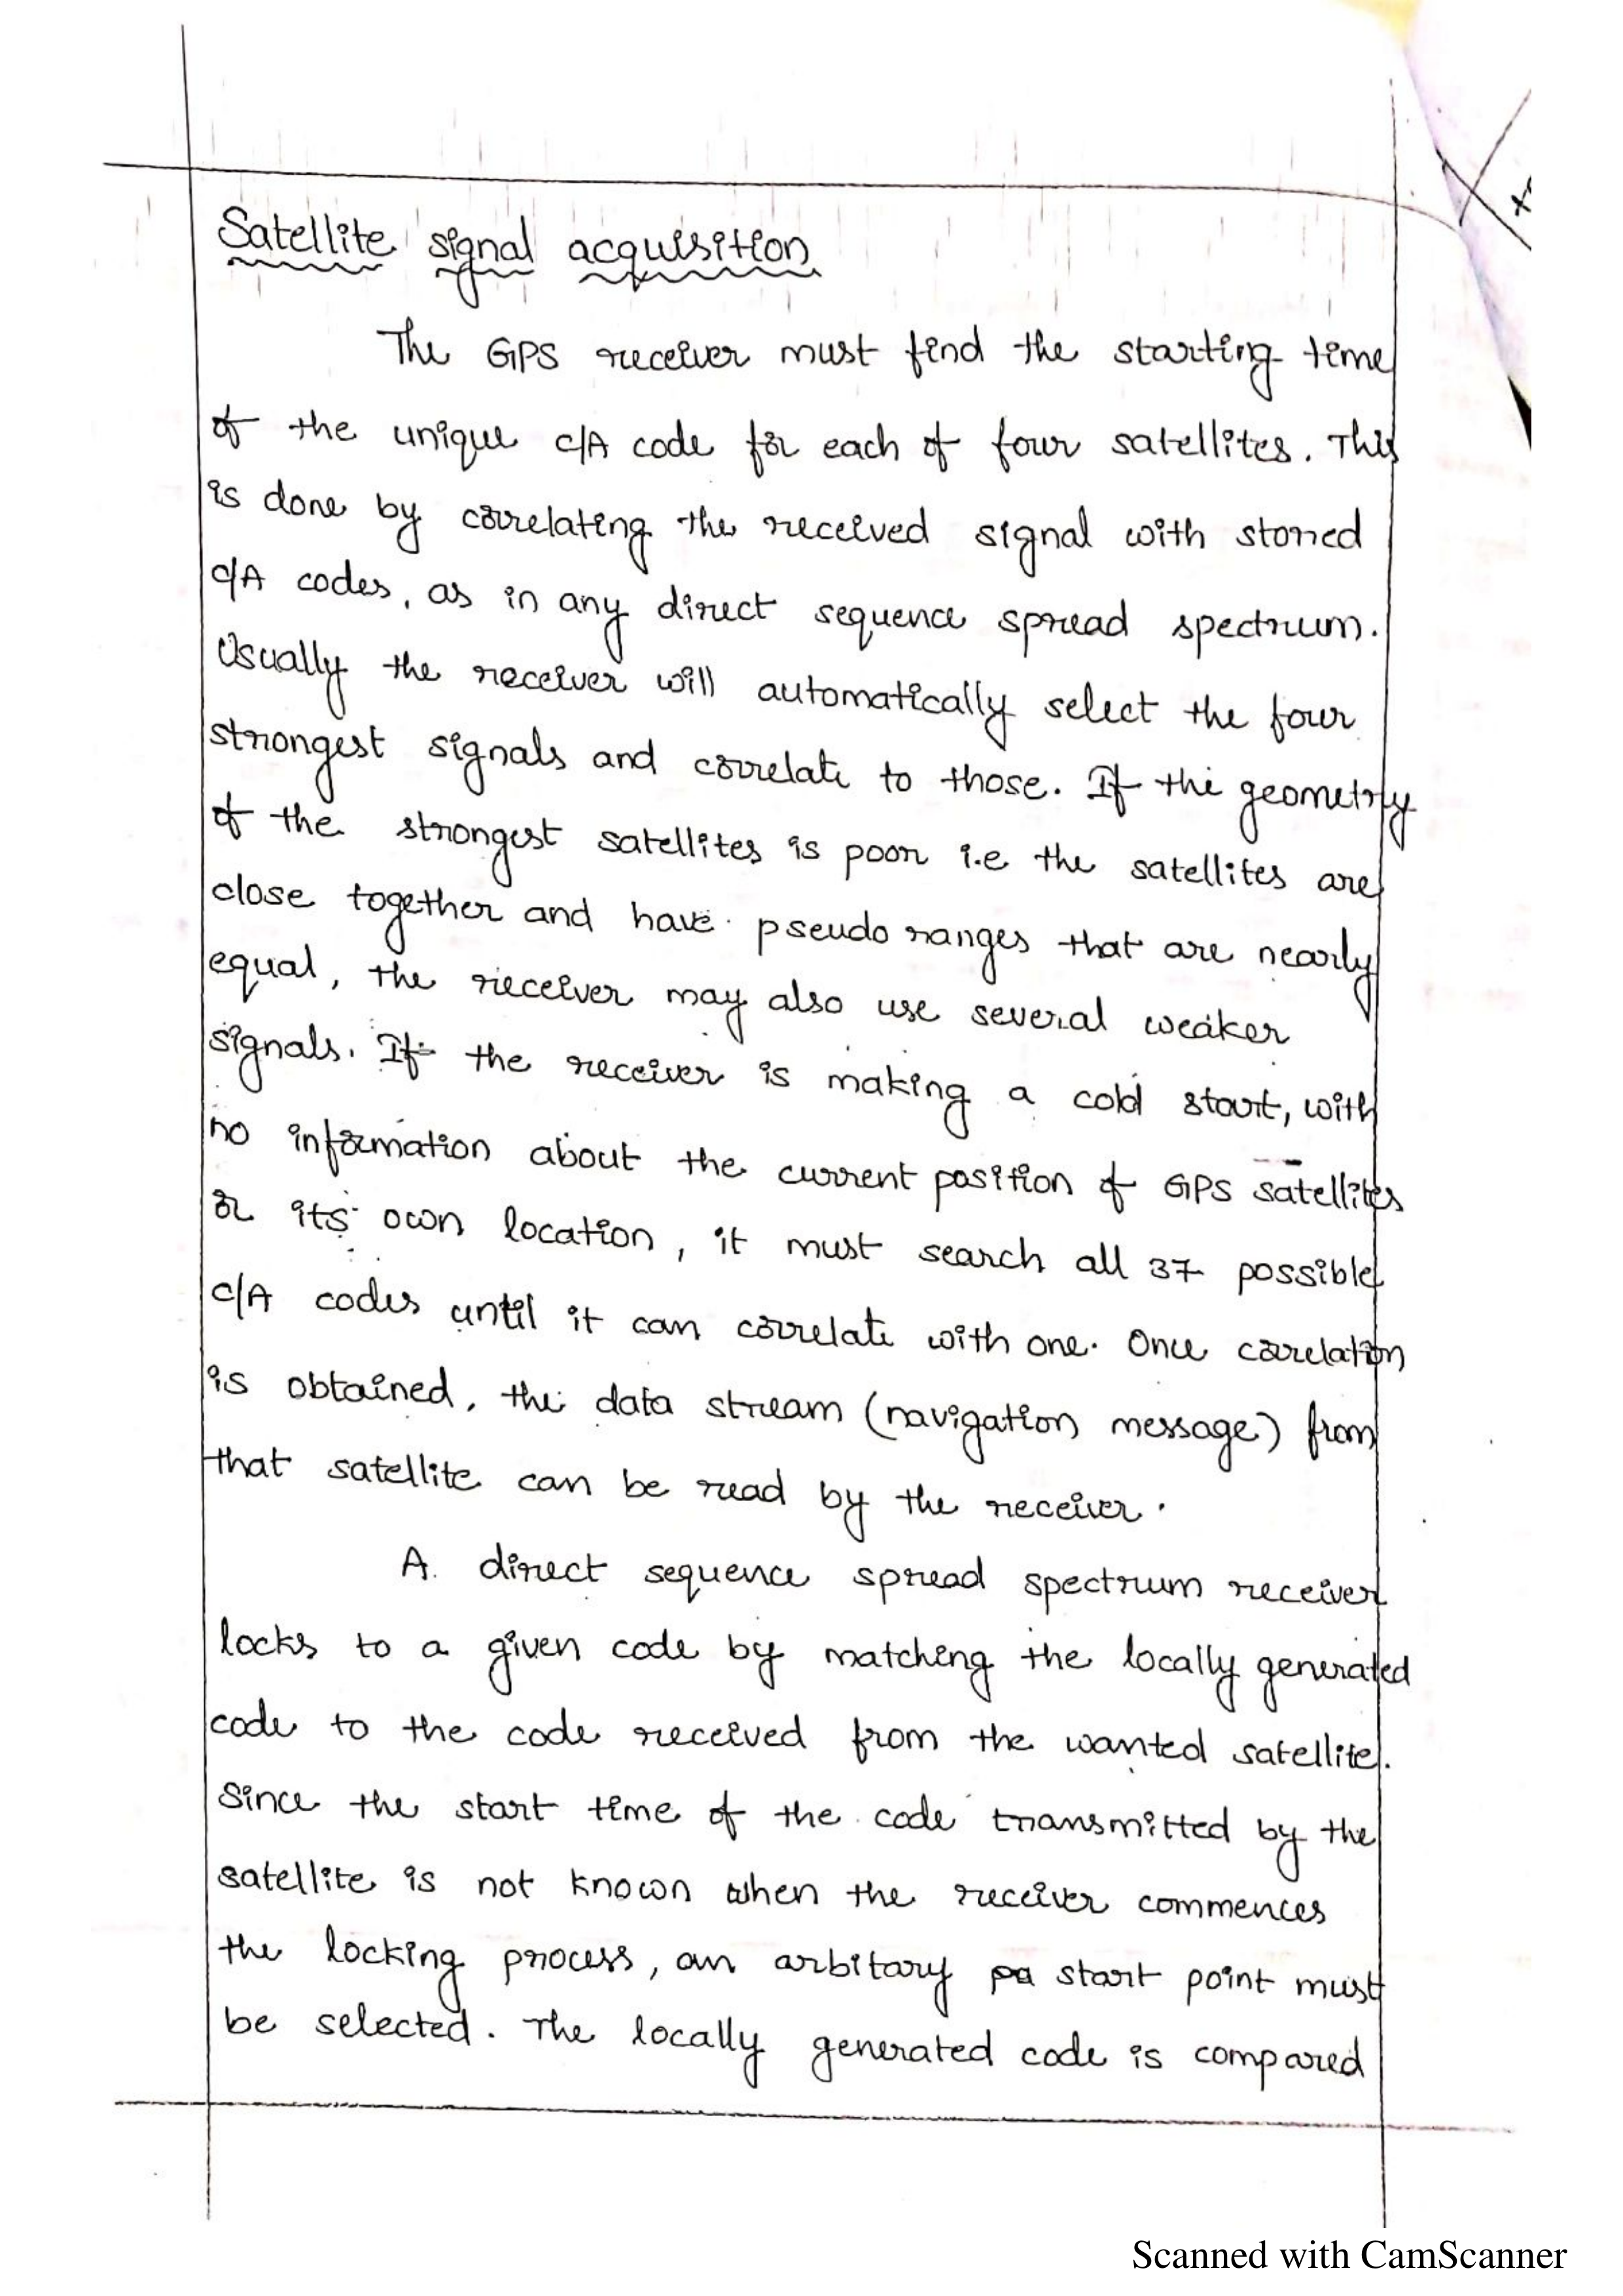 Satellite signal acquisition
The GPS receiver must find the starting time
of the unique C/A code for each of four satellites. This
is done by correlating the received signal with stored
C/A codes, as in any direct sequence spread spectrum.
Usually the receiver will automatically select the four
strongest signals and correlate to those. If the geometry
of the strongest satellites is poor i.e the satellites are
close together and have pseudo ranges that are nearly
equal, the receiver may also use several weaker
signals. If the receiver is making a cold start, with
no information about the current position of GPS satellites
or its own location, it must search all 37 possible
C/A codes until it can correlate with one. Once correlation
is obtained, the data stream (navigation message) from
that satellite can be read by the receiver.
A direct sequence spread spectrum receiver
locks to a given code by matching the locally generated
code to the code received from the wanted satellite.
Since the start time of the code transmitted by the
satellite is not known when the receiver commences
the locking process, an arbitary start point must
be selected. The locally generated code is compared
Scanned with CamScanner